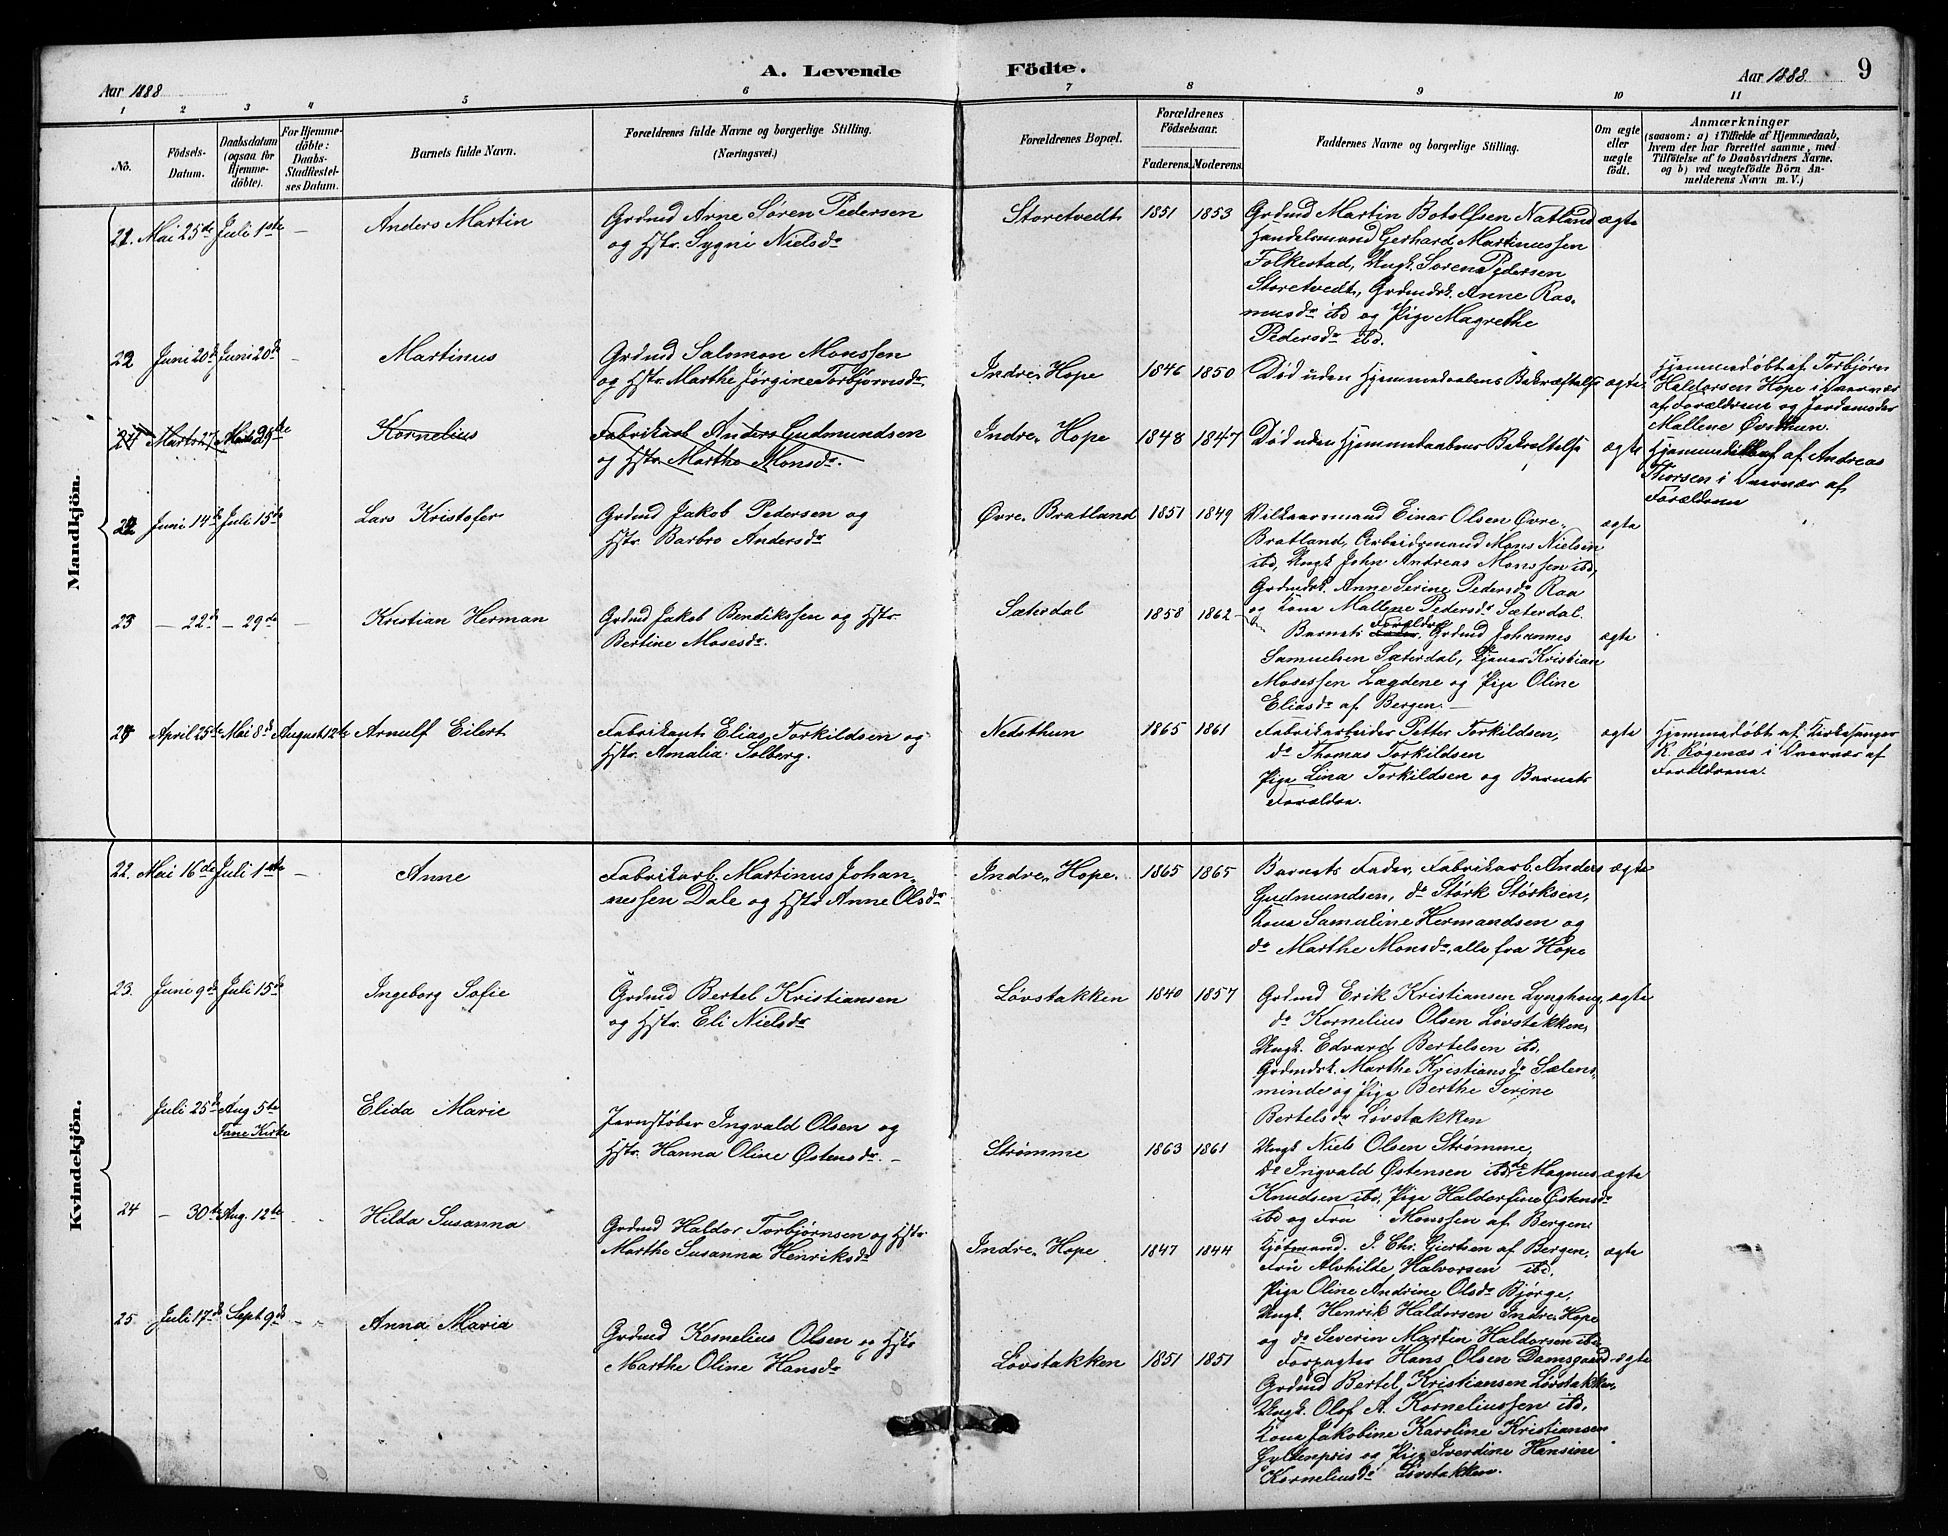 A. Levende Födte.
Aar 1888
Aar 1888. 9
1 2 3 4 5 6 7 8 9 10 11
No.
Födsels-Datum.
Daabsdatum (ogsaa for Hjemme-döbte).
For Hjemme-döbte: Daabs-Stadfæstel-ses Datum.
Barnets fulde Navn.
Forældrenes fulde Navne og borgerlige Stilling.
(Næringsvei.)
Forældrenes Bopæl.
Forældrenes Födselsaar.
Faderens. Moderens.
Faddernes Navne og borgerlige Stilling.
Om ægte eller uægte födt.
Anmærkninger
(saasom: a) i Tilfælde af Hjemmedaab, hvem der har forrettet samme, med Tilföielse af to Daabsvidners Navne. og b) ved uægtefödte Börn An-melderens Navn m. V.)
Mandkjön.
21. Mai 25de Juli 1ste — Anders Martin
Grdmd Arne Søren Pedersen
og Hstr. Sygni Nielsdr
Storetvedt 1851 1853
Grdmd Martin Botolfsen Natland ægte
Handelsmand Gerhard Martinussen
Folkestad, Ungk. Søren Pedersen
Storetvedt, Grdmdsk. Anne Ras-
musdr ibd og Pige Magrethe
Pedersdr ibd.
22 Juni 20de Juni 20de — Martinus
Grdmd Salomon Monssen
og Hstr. Marthe Jørgine Torbjørnsdr.
Indre Hope 1846 1850 Død uden Hjemmedaabens Bekræftelse ægte
Hjemmedøbt af Torbjørn
Haldorsen Hope i Overvær
af Forældrene og Jordemoder
Mallene Øvsthun.
24 Marts 27 Marts 29de Kornelius
Fabrikarb. Anders Gudmundsen
og Hstr. Marthe Monsdr.
Indre Hope 1848 1847 Død uden Hjemmedaabens Bekræftelse ægte
Hjemmedøbt af Andreas
Thorsen i Overvær af
Forældrene
22 Juni 14de Juli 15de Lars Kristofer
Grdmd Jakob Pedersen og
Hstr. Barbro Andersdr
Øvre Bratland 1851 1849
Vilkaarsmand Einar Olsen Øvre
Bratland, Arbeidsmand Mons Nielsen
ibd, Ungk John Andreas Monssen ibd,
Grdmdsk. Anne Serine Pedersdr Raa
og Kona Mallene Pedersdr Sæterdal.
ægte
23 — 22de — 29de — Kristian Herman
Grdmd Jakob Bendikssen og Hstr.
Bertine Mosesdr.
Sæterdal 1858 1862
Barnets Forældre, Grdmd Johannes
Samuelsen Sæterdal, Tjener Kristian
Mosessen Lægdene og Pige Oline
Eliasdr af Bergen.
ægte
24 April 25de Mai 8de August 12te Arnulf Eilert
Fabrikant Elias Torkildsen og
Hstr. Amalia Solberg.
Nedsthun 1865 1861
Fabrikarbeider Petter Torkildsen,
do Thomas Torkildsen
Pige Lina Torkildsen og Barnets
Forældre.
ægte
Hjemmedøbt af Kirkesanger
K. Røgenæs i Overvær af
Forældrene.
Kvindekjön.
22. Mai 16de Juli 1ste — Anne
Fabrikarb. Martinus Johan-
nessen Dale og Hstr Anne Olsdr
Indre Hope. 1865 1865
Barnets Fader, Fabrikarb. Anders ægte
Gudmundsen, do Størk Størksen,
Kona Samuline Hermandsen og
do Marthe Monsdr, alle fra Hope
23. Juni 9de Juli 15de Ingeborg Sofie
Grdmd Bertel Kristiansen
og Hstr. Eli Nielsdr
Løvstakken 1840 1857
Grdmd Erik Kristiansen Lynghaug, ægte
do Kornelius Olsen Løvstakken,
Ungk. Edvard Bertelsen ibd,
Grdmdsk. Marthe Kristiansdr Sælens-
minde og Pige Berthe Serine
Bertelsdr Løvstakken
Juli 25de Aug 5te Elida Marie
Fane Kirke
Jernstøber Ingvald Olsen og
Hstr. Hanna Oline Østensdr. —
Strømme 1863 1861
Ungk Niels Olsen Strømme,
do Ingvald Østensen ibd, do Magnus ægte
Knudsen ibd, Pige Haldorfine Østensdr
ibd og Fru Monssen af Bergen.
24 — 30te Aug. 12te Hilda Susanna
Grdmd Haldor Torbjørnsen og Hstr
Marthe Susanna Henriksdr
Indre Hope 1847 1844
Kjøbmand. J. Chr. Giertsen af Bergen, ægte
Fru Alvhilde Halvorsen ibd,
Pige Oline Andrine Olsdr Bjørge,
Ungk. Henrik Haldorsen Indre Hope
og do Severin Martin Haldorsen ibd.
25 Juli 17de Sept 9de — Anna Maria
Grdmd Kornelius Olsen og Hstr
Marthe Oline Hansdr
Løvstakken 1851 1851
Forpagter Hans Olsen Damsgaard ægte
Grdmd Bertel Kristiansen Løvstakken,
Ungk. Olof A. Korneliussen ibd,
Kona Jakobine Karoline Kristiansen
Gyldenpris og Pige Iverdine Hansine
Korneliusdr Løvstakken.